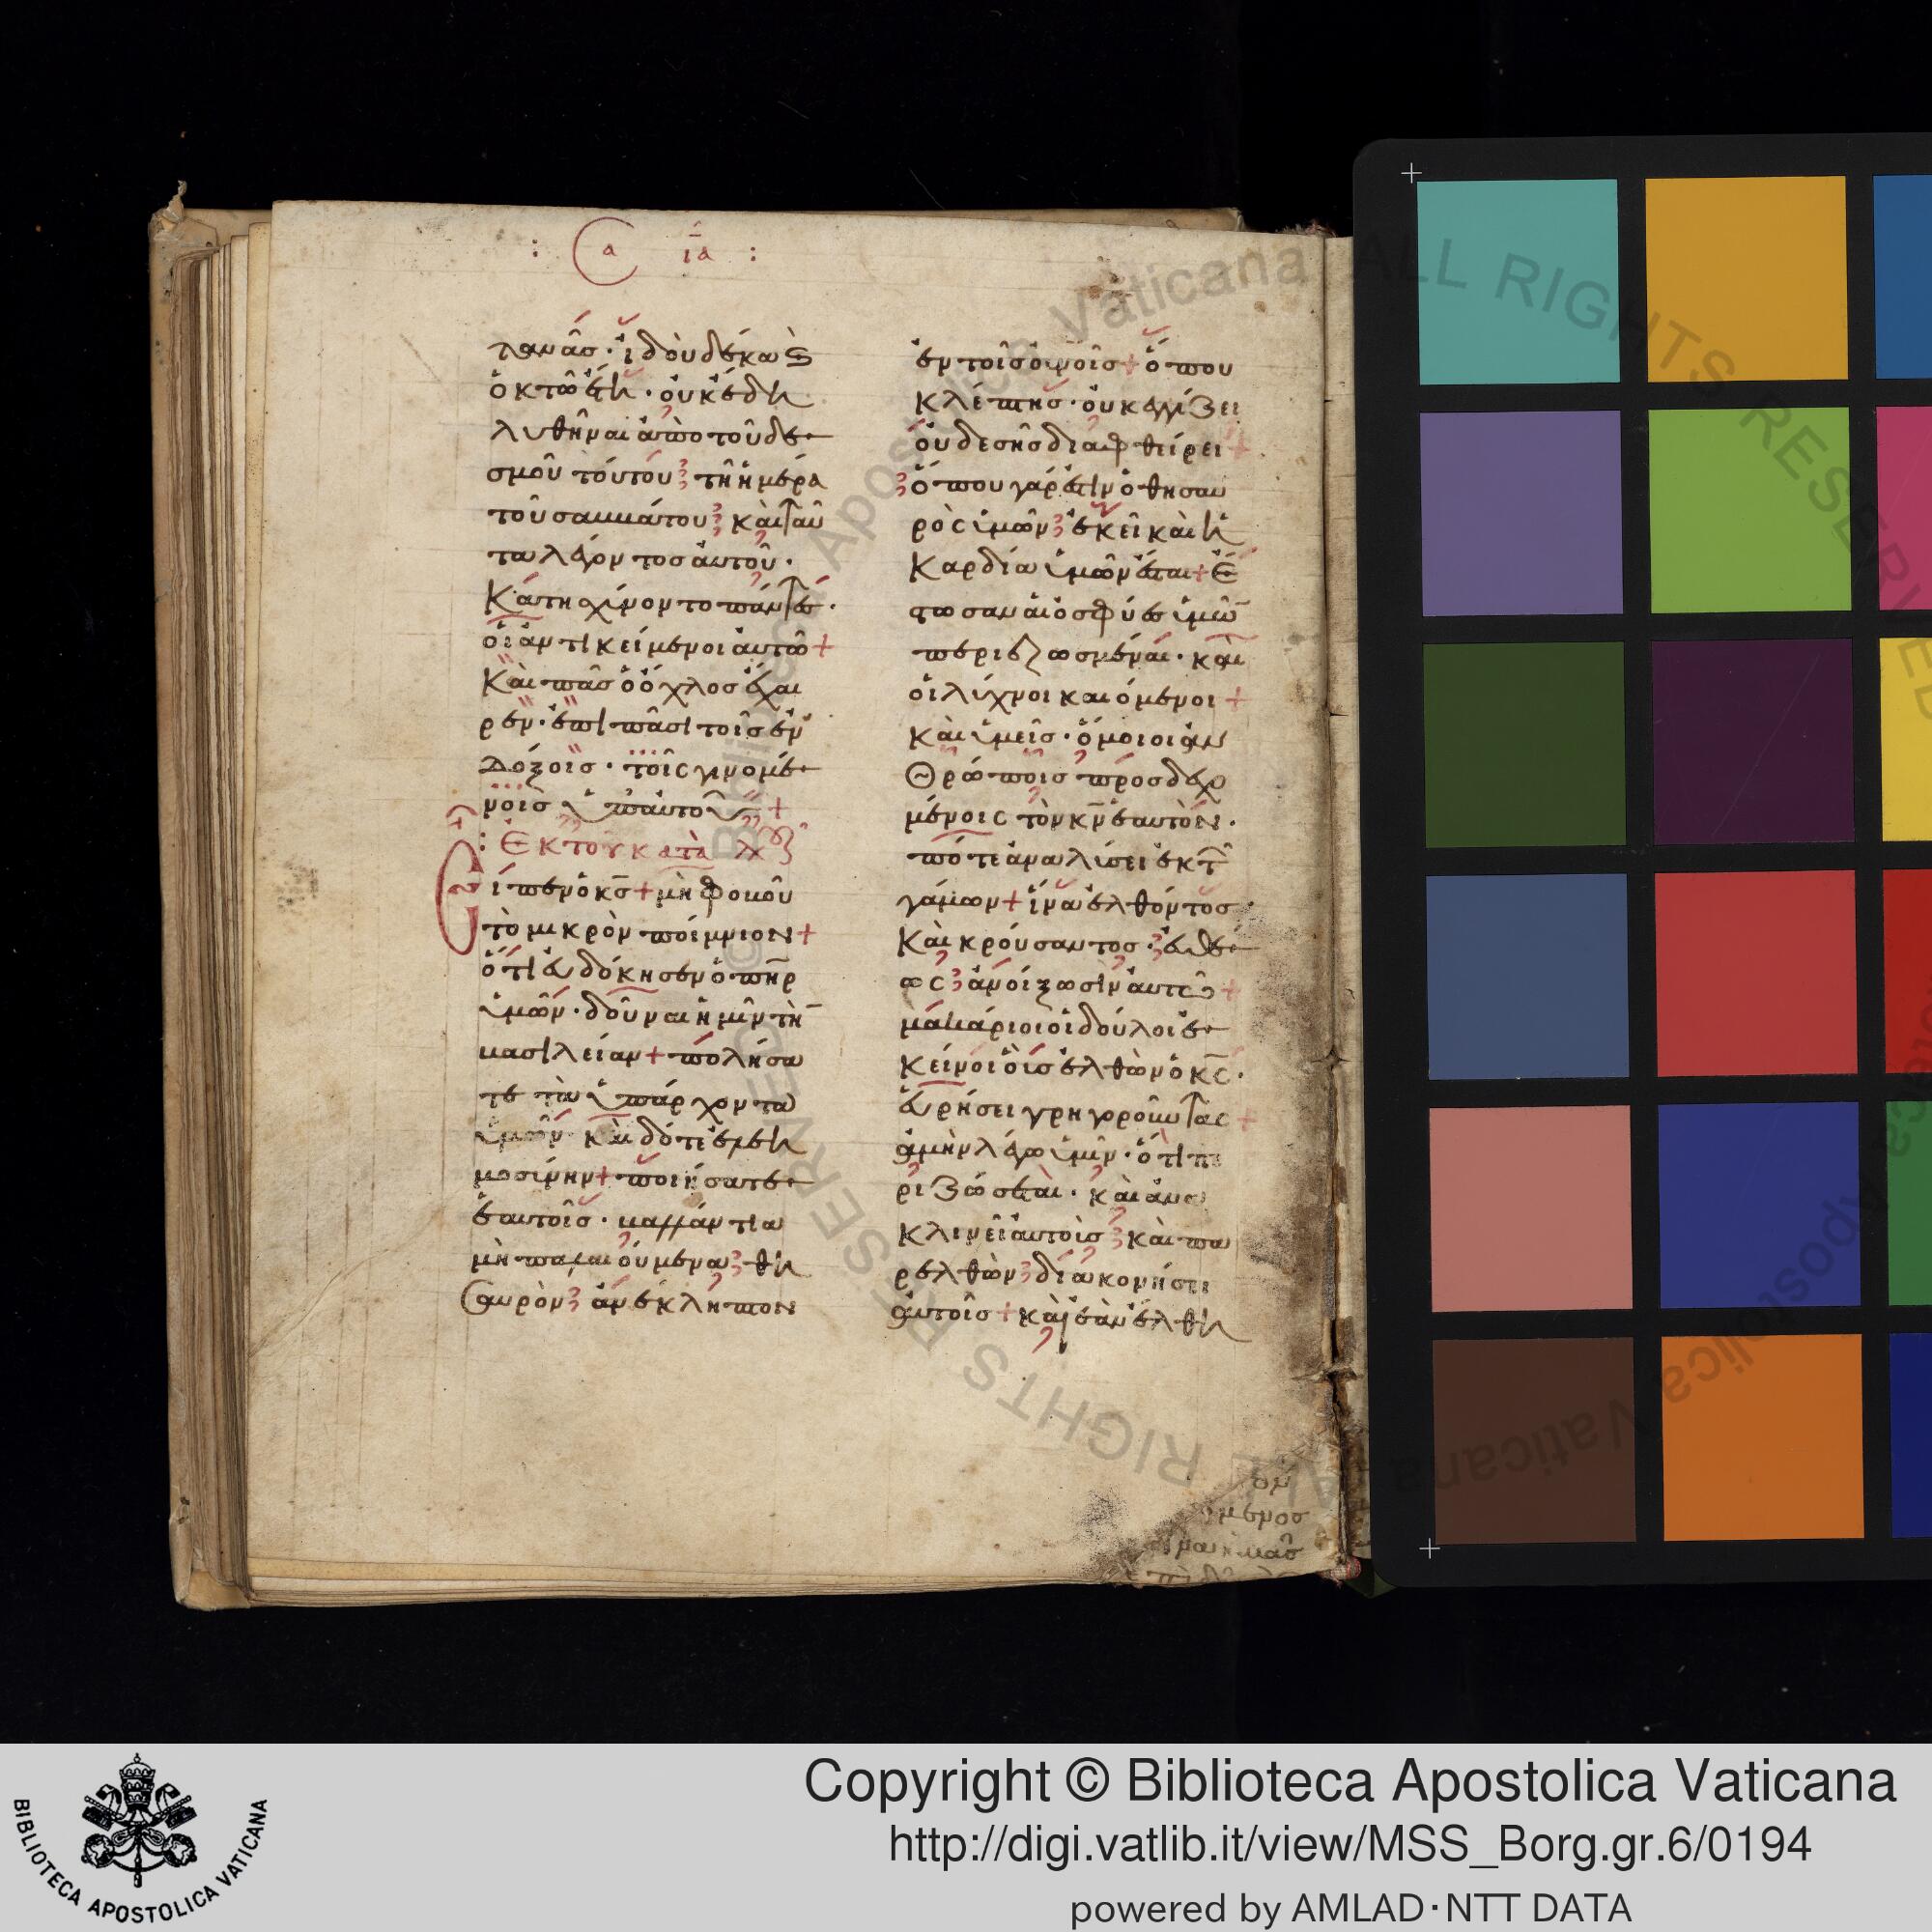 : Σα ια :
τανᾶσ· ἰδοὺ δέκα ϗ
ὀκτῶ ἔτη· οὐκ ἔδει
λυθῆναι ἀπο τοῦ δε
σμοῦ τούτου τῆ ἡμέρα
τοῦ σαββάτου καὶ ταῦ
τα λέγοντοσ ἀυτοῦ·
Κατησχίνοντο πάντες·
οἱ ἀντικείμενοι ἀυτῶ +
Καὶ πᾶσ ὁ ὄχλοσ ἔχαι
ρεν· ἐπὶ πᾶσι τοῖσ ἐν
δόξοισ· τοῖς γινομέ
νοισ ὑπ αυτοῦ +
: Εκ του κατὰ λου
εἶπεν ὁ κς + μὴ φοβοῦ
τὸ μικρὸν ποίμνιον +
ὅτι ἐυδόκησεν ὁ πηρ
ὑμῶν· δοῦναι ἡμῖν τὴ
βασιλείαν + πολήσα
τε τὰ ὑπάρχοντα
ὑμῶν καὶ δότε ἐλεη
μοσίνην + ποιήσατε
ἑαυτοῖσ· βαλλάντια
μὴ παλαιούμενα θη
σαυρὸν ἀνέκληπον
ἐν τοῖσ οὐνοῖσ + ὅπου
κλέπτησ· οὐκ ἐγγίζει
οὐδε σὴσ διαφθείρει +
ὅπου γάρ ἐστιν ὁ θησαυ
ρὸς ὑμῶν ἐκεῖ καὶ ἡ
Καρδία ὑμῶν ἔσται + Ἔ
στωσαν αἱ ὀσφύες ὑμῶ
περιεζωσμέναι· καὶ
οἱ λύχνοι καιόμενοι +
Καὶ ὑμεῖσ· ὅμοιοι ἀν
Θρώποισ προσδεχο
μένοις τὸν κν ἑαυτὸν·
πότε ἀναλύσει ἐκ τ
γάμων + ἵνα ελθόντοσ·
Καὶ κρούσαντοσ· ἐυθέ
ως ἀνοίξωσιν ἀυτῶ +
μακάριοι οἱ δούλοι ἐ
κείνοι οὓσ ἐλθὼν ὁ κς·
ἑυρήσει γρηγοροῦντας +
ἀμὴν λέγω ὑμῖν· ὅτι πε
ριζώσεται· καὶ ἀνα
κλινεῖ ἀυτοὺσ καὶ πα
ρελθὼν διακονήσει
ἀυτοῖσ + καὶ ἐὰν ἔλθη
Copyright © Biblioteca Apostolica Vaticana
http://digi.vatlib.it/view/MSS_Borg.gr.6/0194
powered by AMLAD·NTT DATA
BIBLIOTECA APOSTOLICA VATICANA